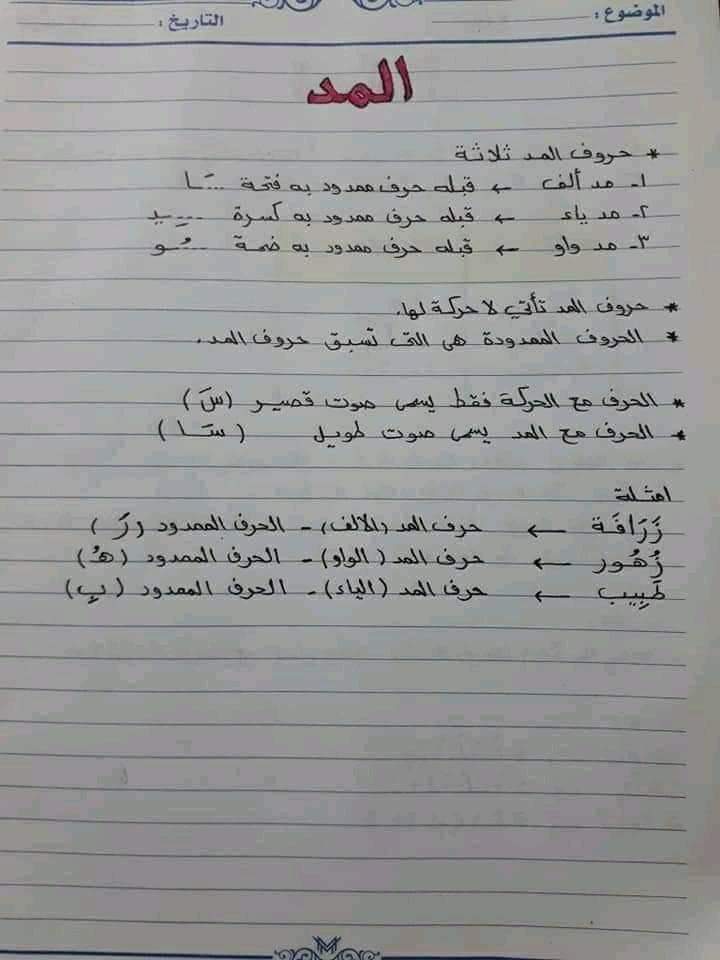 الموضوع :
التاريخ :
المد
* حروف المد ثلاثة
١- مد ألف ← قبله حرف ممدود به فتحة ...ـَـا
٢- مد ياء ← قبله حرف ممدود به كسرة ...ـِـيـ
٣- مد واو ← قبله حرف ممدود به ضمة ...ـُـو
* حروف المد تأتي لا حركة لها.
* الحروف الممدودة هى التى تسبق حروف المد.
* الحرف مع الحركة فقط يسمى صوت قصير (سَ)
* الحرف مع المد يسمى صوت طويل (سَـا)
امثلة
زَرَافَة ← حرف المد (الالف) - الحرف الممدود (رَ)
زُهُور ← حرف المد (الواو) - الحرف الممدود (هُ)
طَبِيب ← حرف المد (الياء) - الحرف الممدود (بِ)